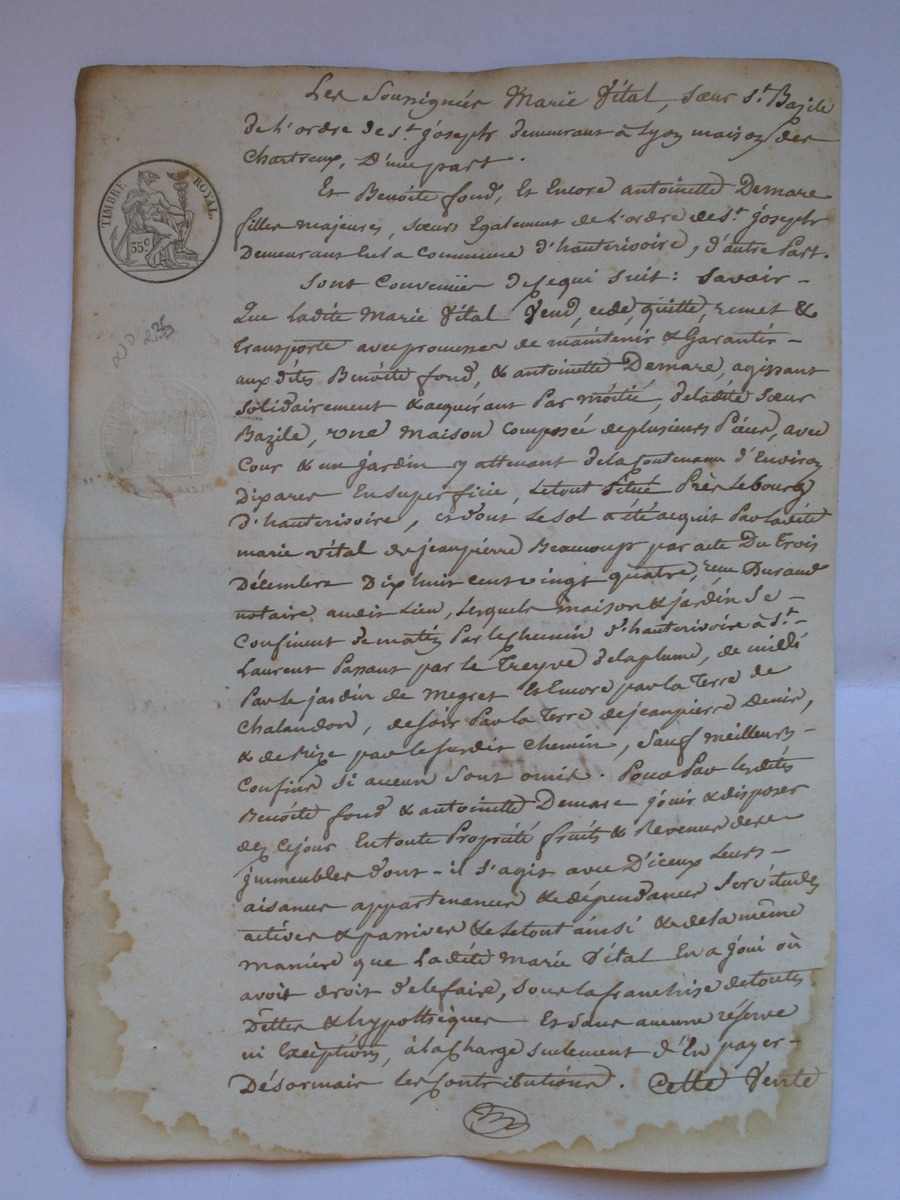 Les Soussignées Marie Vital, sœur St. Bazile
de l'ordre de St. joseph demeurant à Lyon maison des
Chartreux, D'une part.
Et Benoîte fond, Et Encore antoinette Demare
filles majeures, sœurs Egalement de l'ordre de St. joseph
Demeurant en la Commune d'hauterivoire, d'autre Part.
TIMBRE ROYAL
35 c.
Sont Convenües de Ce qui Suit : Savoir -
Que Ladite Marie Vital Vend, cède, quitte, remet &
transporte avec promesse de maintenir & Garantir -
aux dites Benoîte fond, & antoinette Demare, agissant
Solidairement & acquérant Par moitié, de ladite Sœur
Bazile, une maison Composée de plusieurs Pièces, avec
Cour & un jardin y attenant de la Contenance d'Environ
Dix ares En superficie, Le tout Situé Près le bourg
d'hauterivoire, et dont Le Sol a été acquit Par ladite
marie vital de jean pierre Beaucoup par acte Du Trois
Décembre Dix huit cent vingt quatre, reçu Durand
notaire audit Lieu, Lesquels maison & jardin Se -
Confinent de matin Par le Chemin d'hauterivoire à St.
Laurent Passant par le Treyve de la plume, de midi
Par Le jardin de Megret Et Encore par la Terre de
Chalandon, de soir Par la Terre de jean pierre Denis,
& de Bize par le susdit Chemin, Sauf meilleurs -
Confins Si aucun Sont omis. Pour Par lesdites
Benoîte fond & antoinette Demare jouir & disposer
dez Ce jour En toute Propriété fruits & Revenus de ce
jmmeubles dont - il S'agit avec D'iceux Leurs -
aisances appartenances & dépendances Servitudes
actives & passives & Le tout ainsi & de la même
manière que Ladite Marie Vital En a joui où
avoit droit de le faire, Sous la franchise de toutes
Dettes & hypothèques Et Sans aucune réserve
ni Exception, à la Charge seulement d'En payer -
Désormais les Contributions. Cette Vente